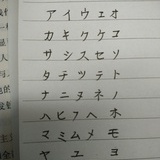 アイウエオ
カキクケコ
サシスセソ
タチツテト
ナニヌネノ
ハヒフヘホ
マミムメモ
ヤユヨ